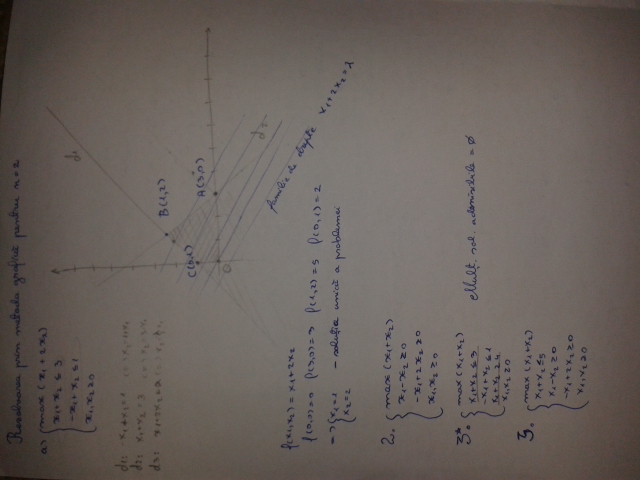 Rezolvarea prin metoda grafică pentru n=2
a) max (x1+2x2)
x1+x2 ≤ 3
-x1+x2 ≤ 1
x1,x2 ≥ 0
d1: -x1+x2=1
d2: x1+x2=3
d1
B(1,2)
C(0,1)
A(3,0)
O
d2
familie de drepte x1+2x2=λ
f(x1,x2) = x1+2x2
f(0,0)=0 f(3,0)=3 f(1,2)=5 f(0,1)=2
=> x1=1 - soluția unică a problemei
x2=2
2. max (x1+x2)
x1-x2 ≥ 0
-x1+2x2 ≥ 0
x1,x2 ≥ 0
3*. max (x1+x2)
x1+x2 ≤ 3 Mulț. sol. admisibile = ∅
-x1+x2 ≤ 1
x1+x2 ≥ 4
x1,x2 ≥ 0
3. max (x1+x2)
x1+x2 ≤ 5
x1-x2 ≥ 0
-x1+2x2 ≥ 0
x1,x2 ≥ 0